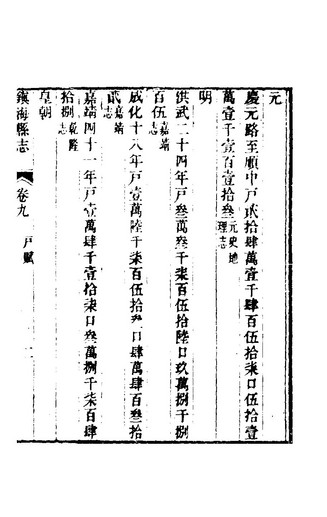 元
慶元路至順中戶貳拾肆萬壹千肆百伍拾柒口伍拾壹
萬壹千壹百壹拾叁元史地理志
明
洪武二十四年戶叁萬叁千柒百伍拾陸口玖萬千捌
百伍嘉靖志
成化十八年戶壹萬陸千柒百伍拾叁口肆萬肆百叁拾
貳嘉靖志
嘉靖四十一年戶壹萬肆千壹拾柒口叁萬捌千柒百肆
拾捌乾隆志
皇朝
鎮海縣志
卷九
戶賦